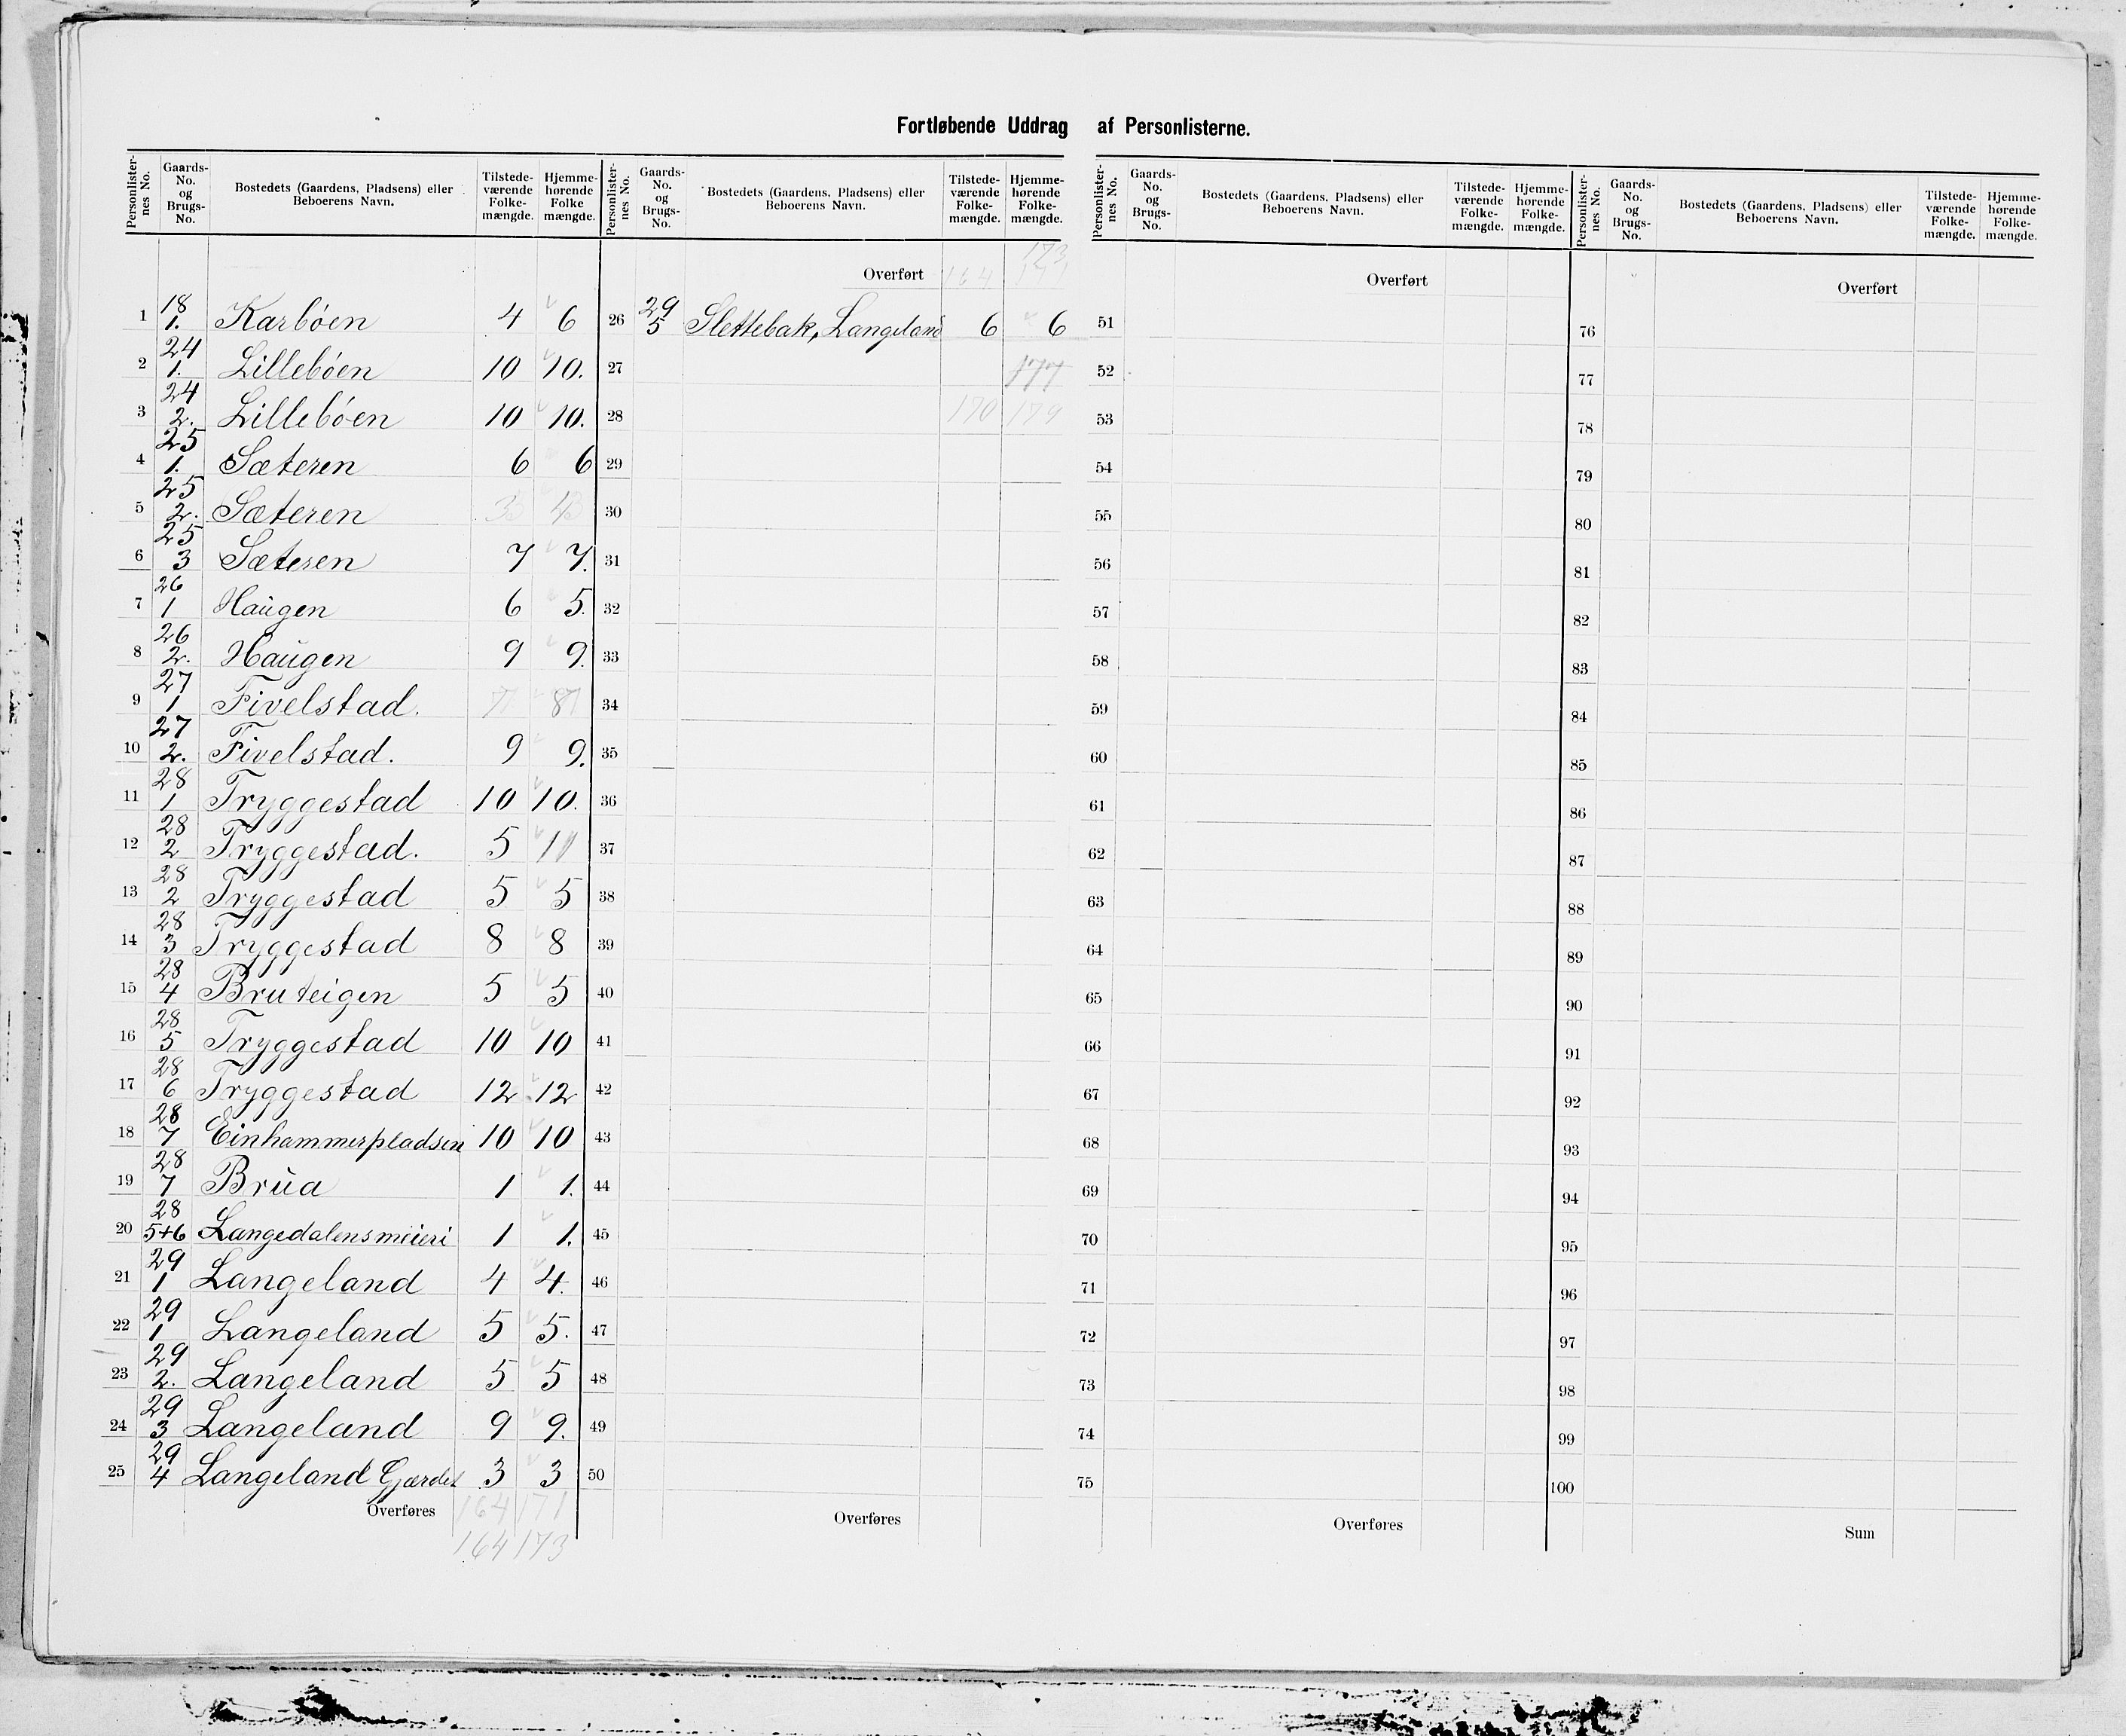 Fortløbende Uddrag af Personlisterne.
Personlister-nes No. Gaards-No. og Brugs-No. Bostedets (Gaardens, Pladsens) eller Beboerens Navn. Tilstede-værende Folke-mængde. Hjemme-hørende Folke mængde. Personlister-nes No. Gaards-No. og Brugs-No. Bostedets (Gaardens, Pladsens) eller Beboerens Navn. Tilstede-værende Folke-mængde. Hjemme-hørende Folke-mængde.
Personlister-nes No. Gaards-No. og Brugs-No. Bostedets (Gaardens, Pladsens) eller Beboerens Navn. Tilstede-værende Folke-mængde. Hjemme-hørende Folke-mængde. Personlister-nes No. Gaards-No. og Brugs-No. Bostedets (Gaardens, Pladsens) eller Beboerens Navn. Tilstede-værende Folke-mængde. Hjemme-hørende Folke-mængde.
173
Overført 164 171 Overført Overført
1 18 1. Karbøen 4 6 26 29 5 Slettebak, Langeland 6 6 51 76
2 24 1. Lillebøen 10 10. 27 177 52 77
3 24 2. Lillebøen 10 10. 28 170 179 53 78
4 25 1. Sæteren 6 6 29 54 79
5 25 2. Sæteren 30 55 80
6 25 3 Sæteren 7 7. 31 56 81
7 26 1 Haugen 6 5. 32 57 82
8 26 2. Haugen 9 9. 33 58 83
9 27 1 Fivelstad. 7 8 34 59 84
10 27 2. Fivelstad. 9 9. 35 60 85
11 28 1 Tryggestad 10 10. 36 61 86
12 28 2 Tryggestad. 5 11 37 62 87
13 28 2 Tryggestad 5 5 38 63 88
14 28 3 Tryggestad 8 8 39 64 89
15 28 4 Bruteigen 5 5 40 65 90
16 28 5 Tryggestad 10 10 41 66 91
17 28 6 Tryggestad 12 12 42 67 92
18 28 7 Einhammerpladsen 10 10 43 68 93
19 28 7 Brua 1 1. 44 69 94
20 28 5+6 Langedalensmeieri 1 1. 45 70 95
21 29 1 Langeland 4 4. 46 71 96
22 29 1 Langeland 5 5. 47 72 97
23 29 2. Langeland 5 5 48 73 98
24 29 3 Langeland 9 9. 49 74 99
25 29 4 Langeland Gjærdet 3 3 50 75 100
Overføres 164 171 Overføres Overføres Sum
164 173